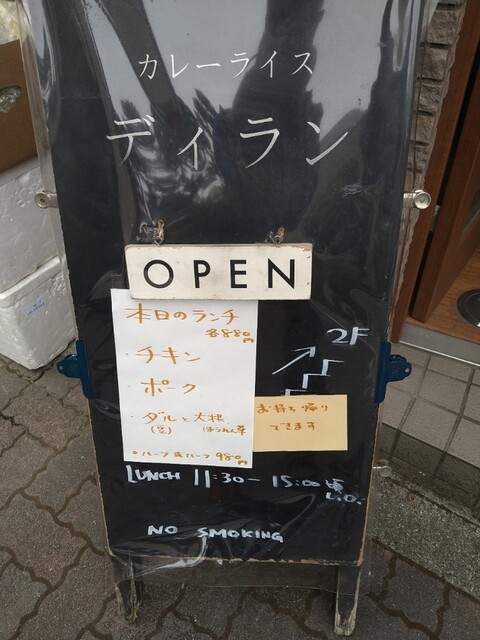 カレーライス
ディラン
OPEN
本日のランチ
各880円
・チキン
・ポーク
・ダルと大根
(豆) ほうれん草
2F
お持ち帰り
できます
LUNCH 11:30-15:00頃
L.O.
NO SMOKING